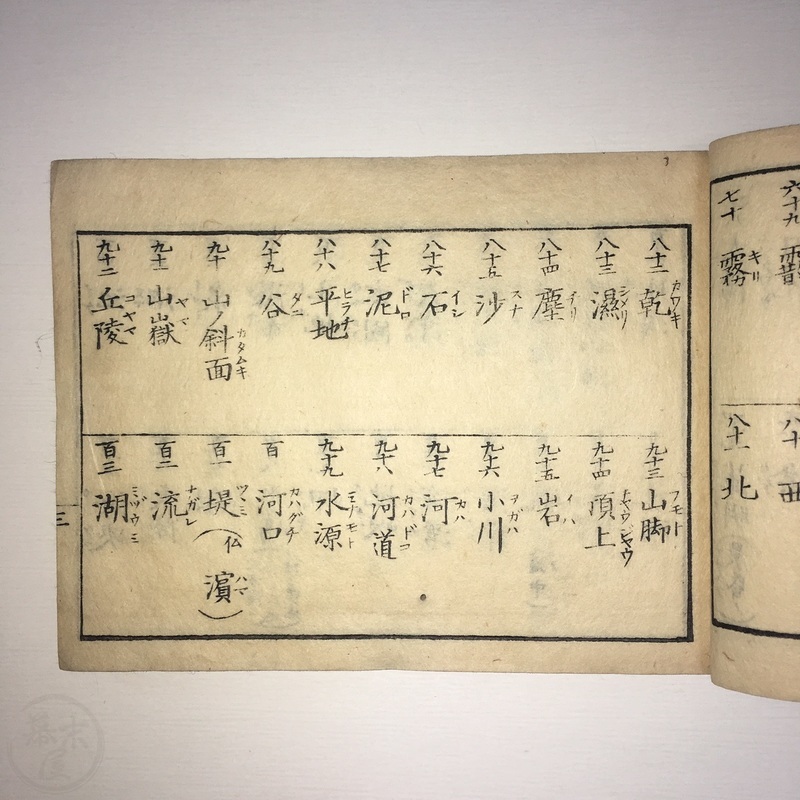 六十九 霰
七十 霧 キリ
八十 西
八十一 北
八十二 乾 カワキ
八十三 濕 シメリ
八十四 塵 チリ
八十五 沙 スナ
八十六 石 イシ
八十七 泥 ドロ
八十八 平地 ヒラチ
八十九 谷 タニ
九十 山ノ斜面 カタムキ
九十一 山嶽 ヤマ
九十二 丘陵 コヤマ
九十三 山脚 フモト
九十四 頂上 チヤウジヤウ
九十五 岩 イハ
九十六 小川 ヲガハ
九十七 河 カハ
九十八 河道 カハドコ
九十九 水源 ミナモト
百 河口 カハグチ
百一 堤 ツヽミ (仏 濱 ハマ)
百二 流 ナガレ
百三 湖 ミヅウミ
三